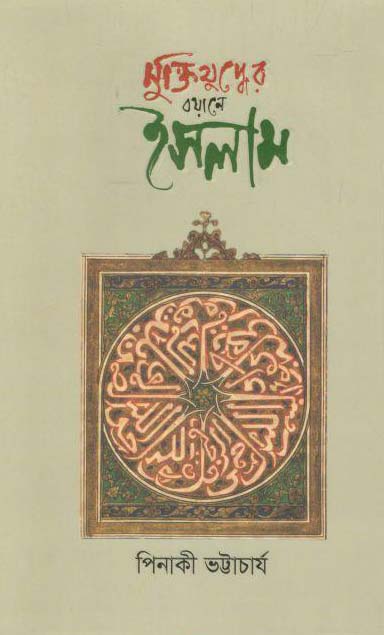 মুক্তিযুদ্ধের
বয়ানে
ইসলাম
পিনাকী ভট্টাচার্য